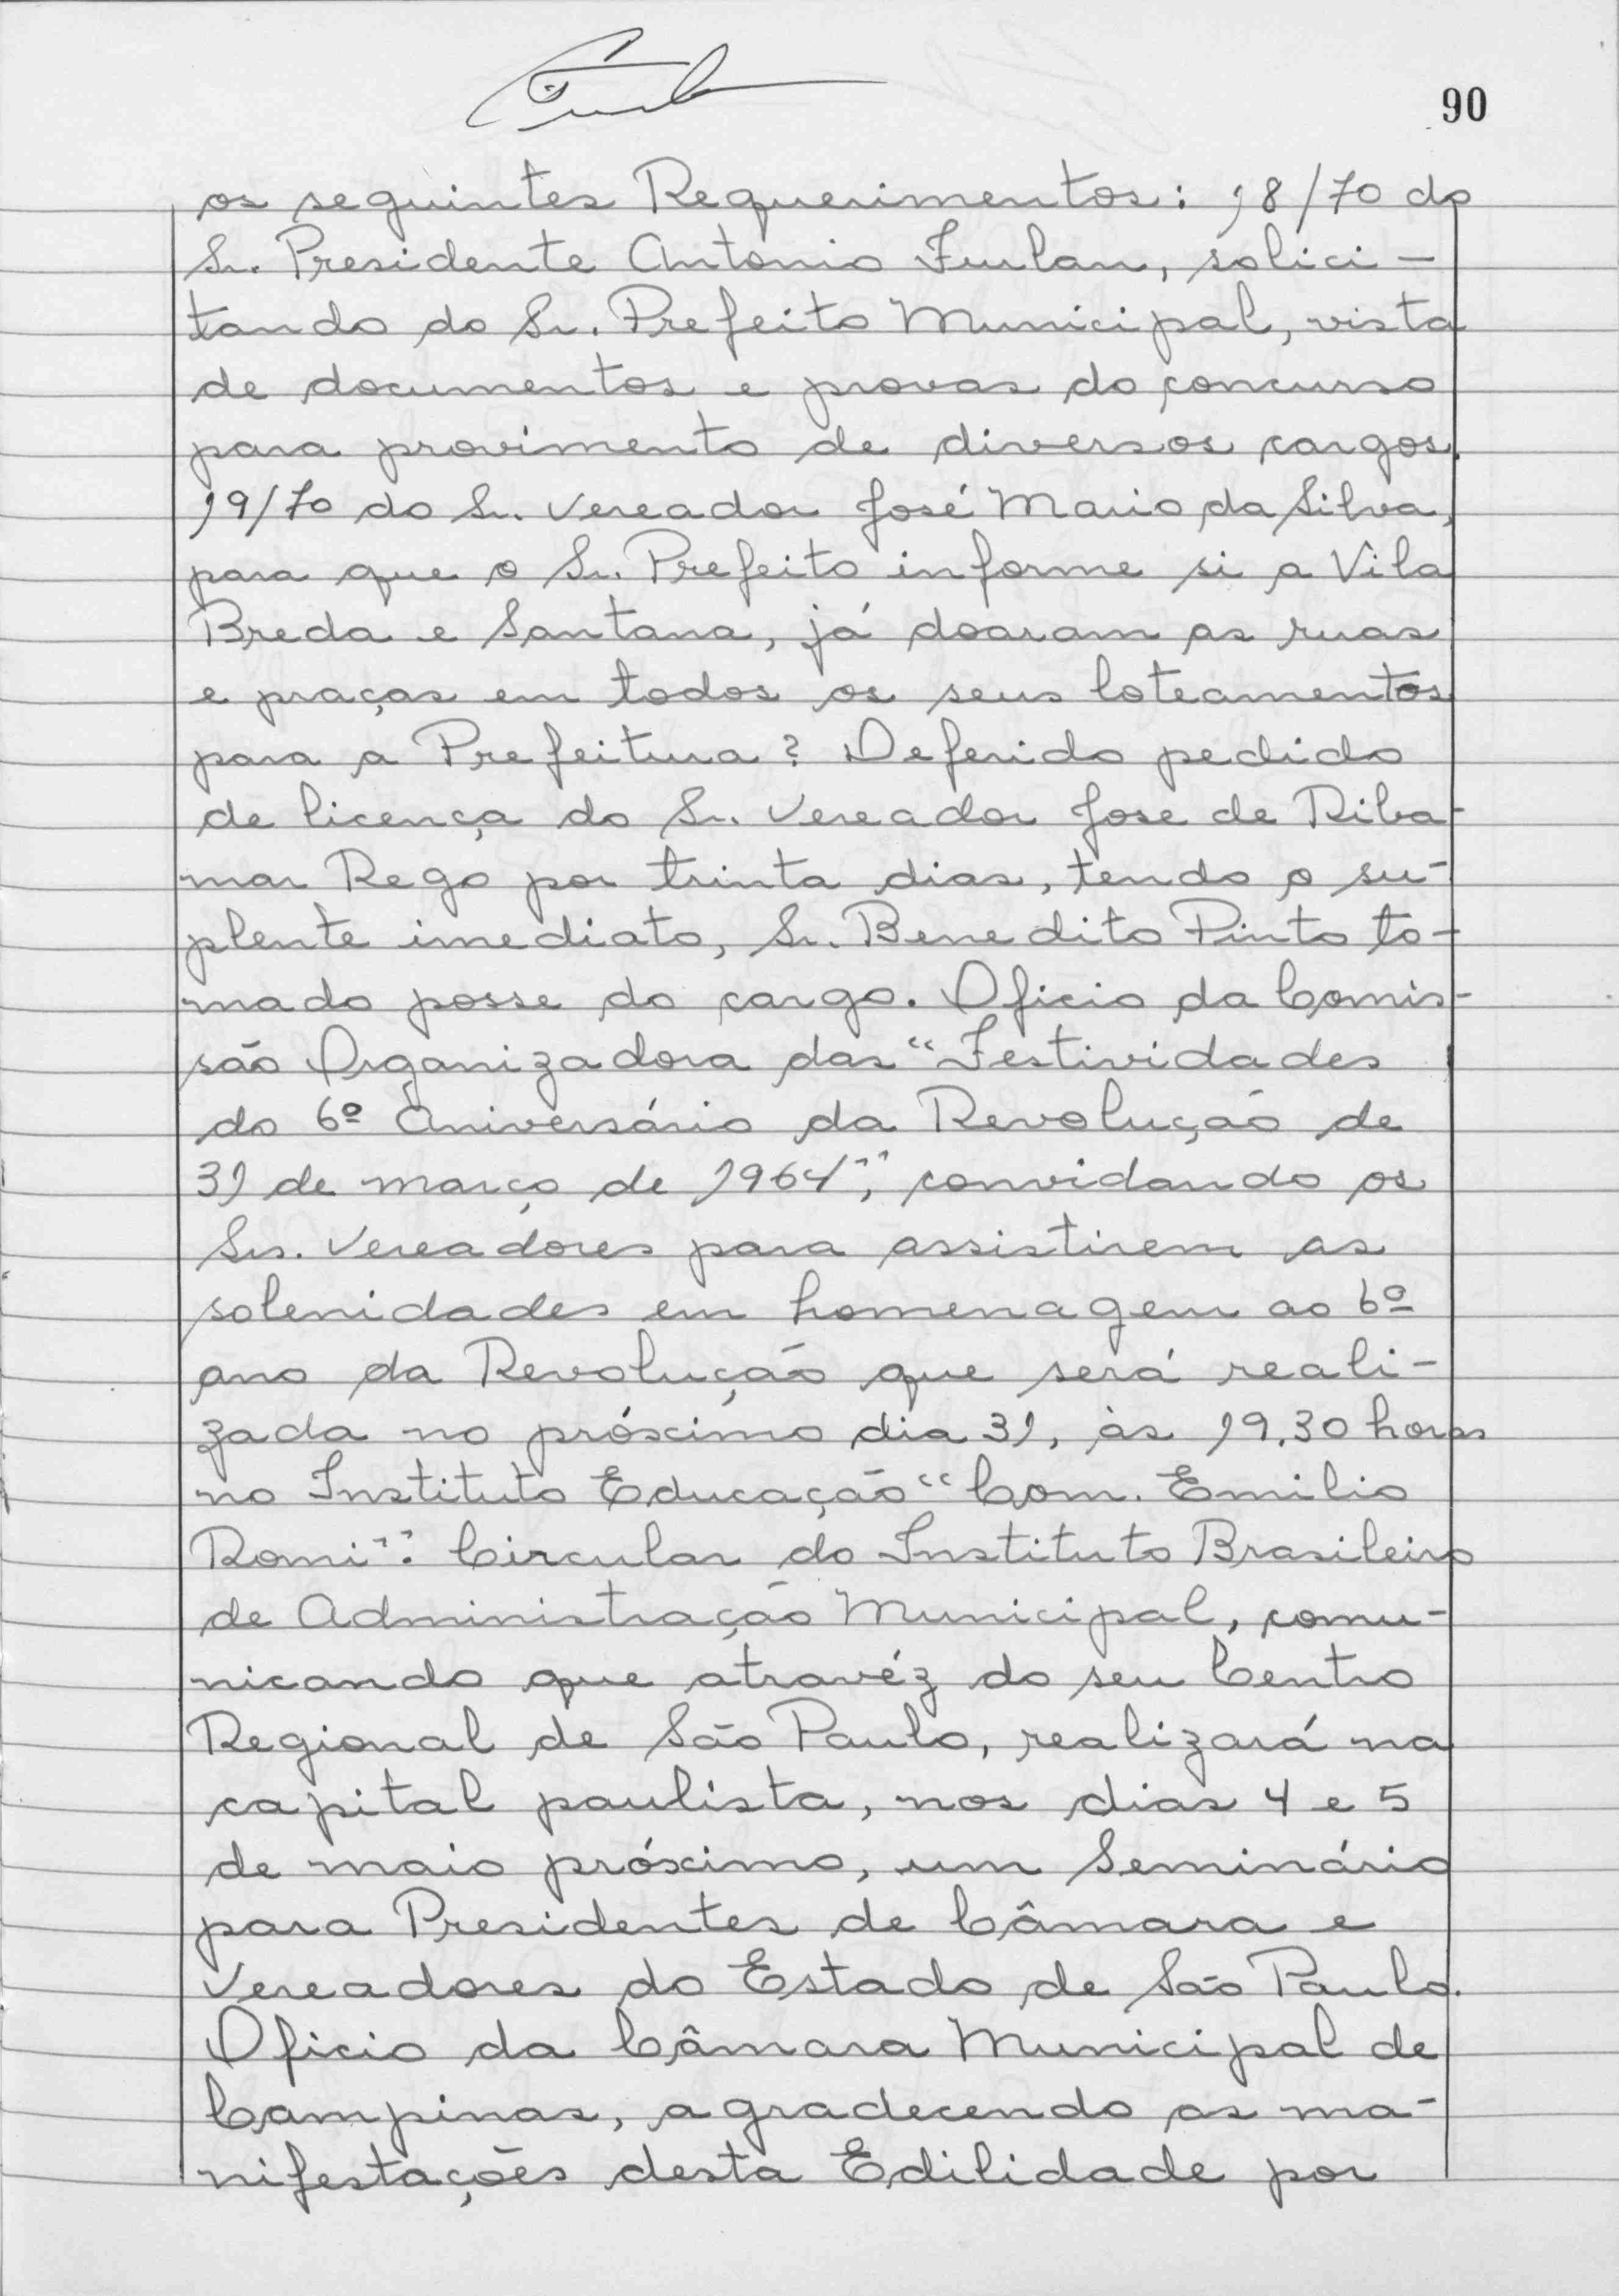 90
os seguintes Requerimentos: 18/70 do
Sr. Presidente Antonio Furlan, solici-
tando do Sr. Prefeito Municipal, vista
de documentos e provas do concurso
para provimento de diversos cargos.
19/70 do Sr. Vereador José Mario da Silva,
para que o Sr. Prefeito informe si a Vila
Breda e Santana, já doaram as ruas
e praças em todos os seus loteamentos
para a Prefeitura? Deferido pedido
de licença do Sr. Vereador Jose de Riba-
mar Rego por trinta dias, tendo o su-
plente imediato, Sr. Benedito Pinto to-
mado posse do cargo. Oficio da Comis-
são Organizadora das "Festividades
do 6º Aniversário da Revolução de
31 de março de 1964", convidando os
Srs. Vereadores para assistirem as
solenidades em homenagem ao 6º
ano da Revolução que será reali-
zada no próximo dia 31, às 19.30 horas
no Instituto Educação "Com. Emilio
Romi". Circular do Instituto Brasileiro
de Administração Municipal, comu-
nicando que atravéz do seu Centro
Regional de São Paulo, realizará na
capital paulista, nos dias 4 e 5
de maio próximo, um Seminário
para Presidentes de Câmara e
Vereadores do Estado de São Paulo.
Oficio da Câmara Municipal de
Campinas, agradecendo as ma-
nifestações desta Edilidade por